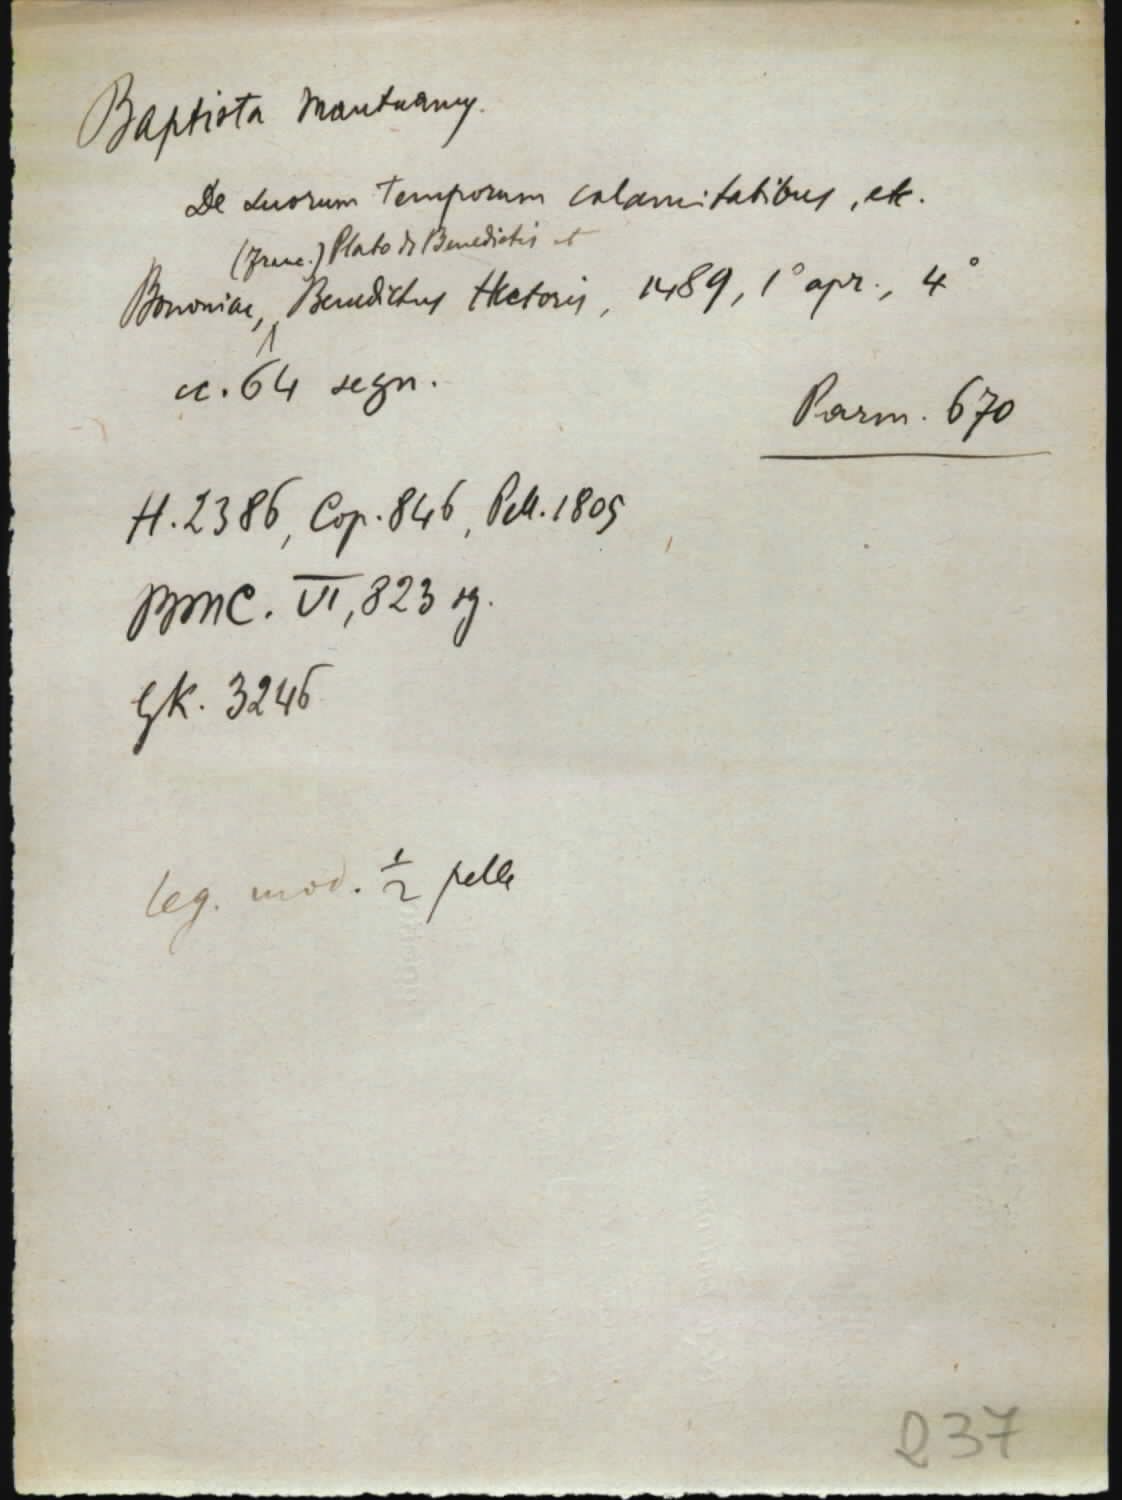 Baptista Mantuanus.
De suorum temporum calamitatibus, etc.
(Franc.) Plato de Benedictis et
Bononiae, Benedictus Hectoris, 1489, 1° apr., 4°
cc. 64 segn.
Parm. 670
H. 2386, Cop. 846, Pell. 1805
BMC. VI, 823 sg.
GK. 3246
leg. mod. 1/2 pelle
237